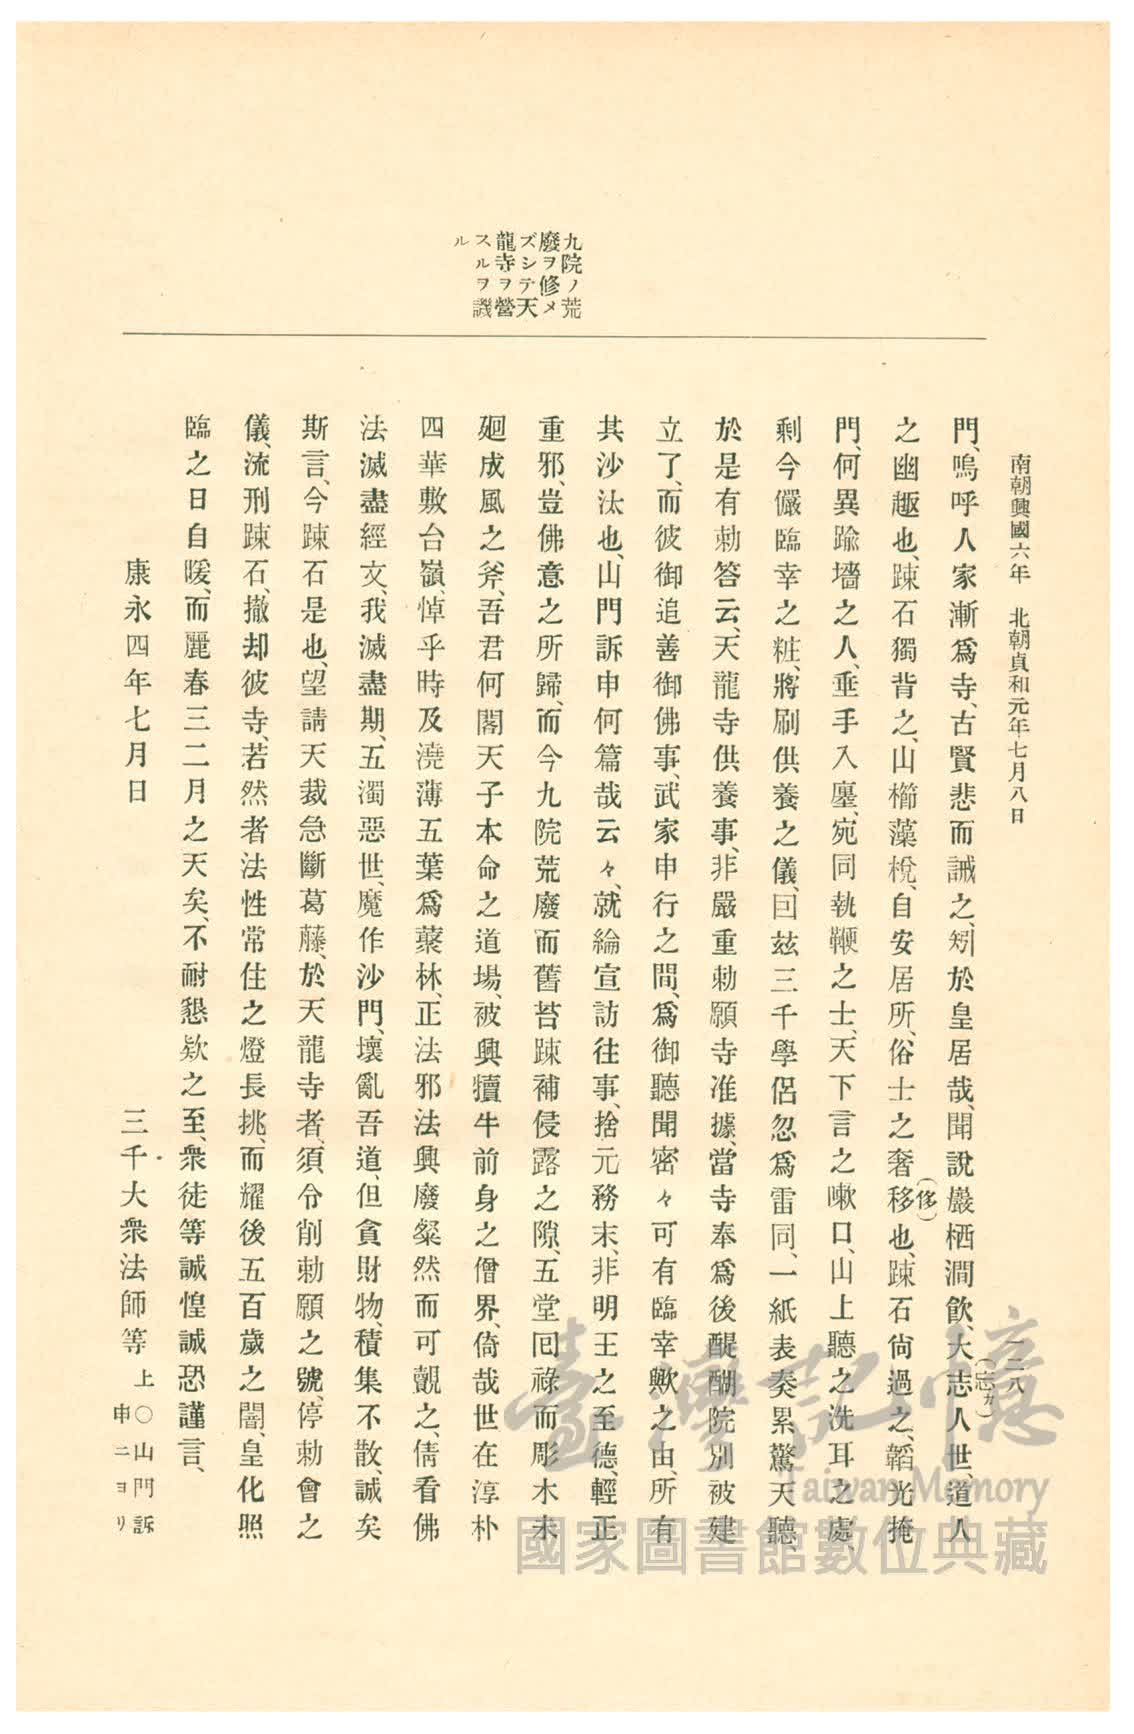 南朝興國六年　北朝貞和元年七月八日
一二八
九院ノ荒
廢ヲ修メ
ズシテ天
龍寺ヲ營
スルヲ譏
ル
門、嗚呼人家漸爲寺、古賢悲而誡之、矧於皇居哉、聞說巖栖澗飮、大志(忘カ)人世、道人
之幽趣也、踈石獨背之、山櫛藻梲、自安居所、俗士之奢移(侈)也、踈石尙過之、韜光掩
門、何異踰墻之人、垂手入廛、宛同執鞭之士、天下言之嗽口、山上聽之洗耳之處、
剩今儼臨幸之粧、將刷供養之儀、因玆三千學侶忽爲雷同、一紙表奏累驚天聽、
於是有勅答云、天龍寺供養事、非嚴重勅願寺准據、當寺奉爲後醍醐院別被建
立了、而彼御追善御佛事、武家申行之間、爲御聽聞密々可有臨幸歟之由、所有
其沙汰也、山門訴申何篇哉云々、就綸宣訪往事、捨元務末、非明王之至德、輕正
重邪、豈佛意之所歸、而今九院荒廢而舊苔踈補侵露之隙、五堂回祿而彫木未
廻成風之斧、吾君何閣天子本命之道場、被興犢牛前身之僧界、倚哉世在淳朴
四華敷台嶺、悼乎時及澆薄五葉爲藂林、正法邪法興廢粲然而可觀之、倩看佛
法滅盡經文、我滅盡期、五濁惡世、魔作沙門、壞亂吾道、但貪財物、積集不散、誠矣
斯言、今踈石是也、望請天裁急斷葛藤、於天龍寺者、須令削勅願之號、停勅會之
儀、流刑踈石、撤却彼寺、若然者法性常住之燈長挑、而耀後五百歲之闇、皇化照
臨之日自暖、而麗春三二月之天矣、不耐懇欵之至、衆徒等誠惶誠恐謹言、
康永四年七月日　三千大衆法師等上
○山門訴
申ニヨリ
臺灣記憶
Taiwan Memory
國家圖書館數位典藏